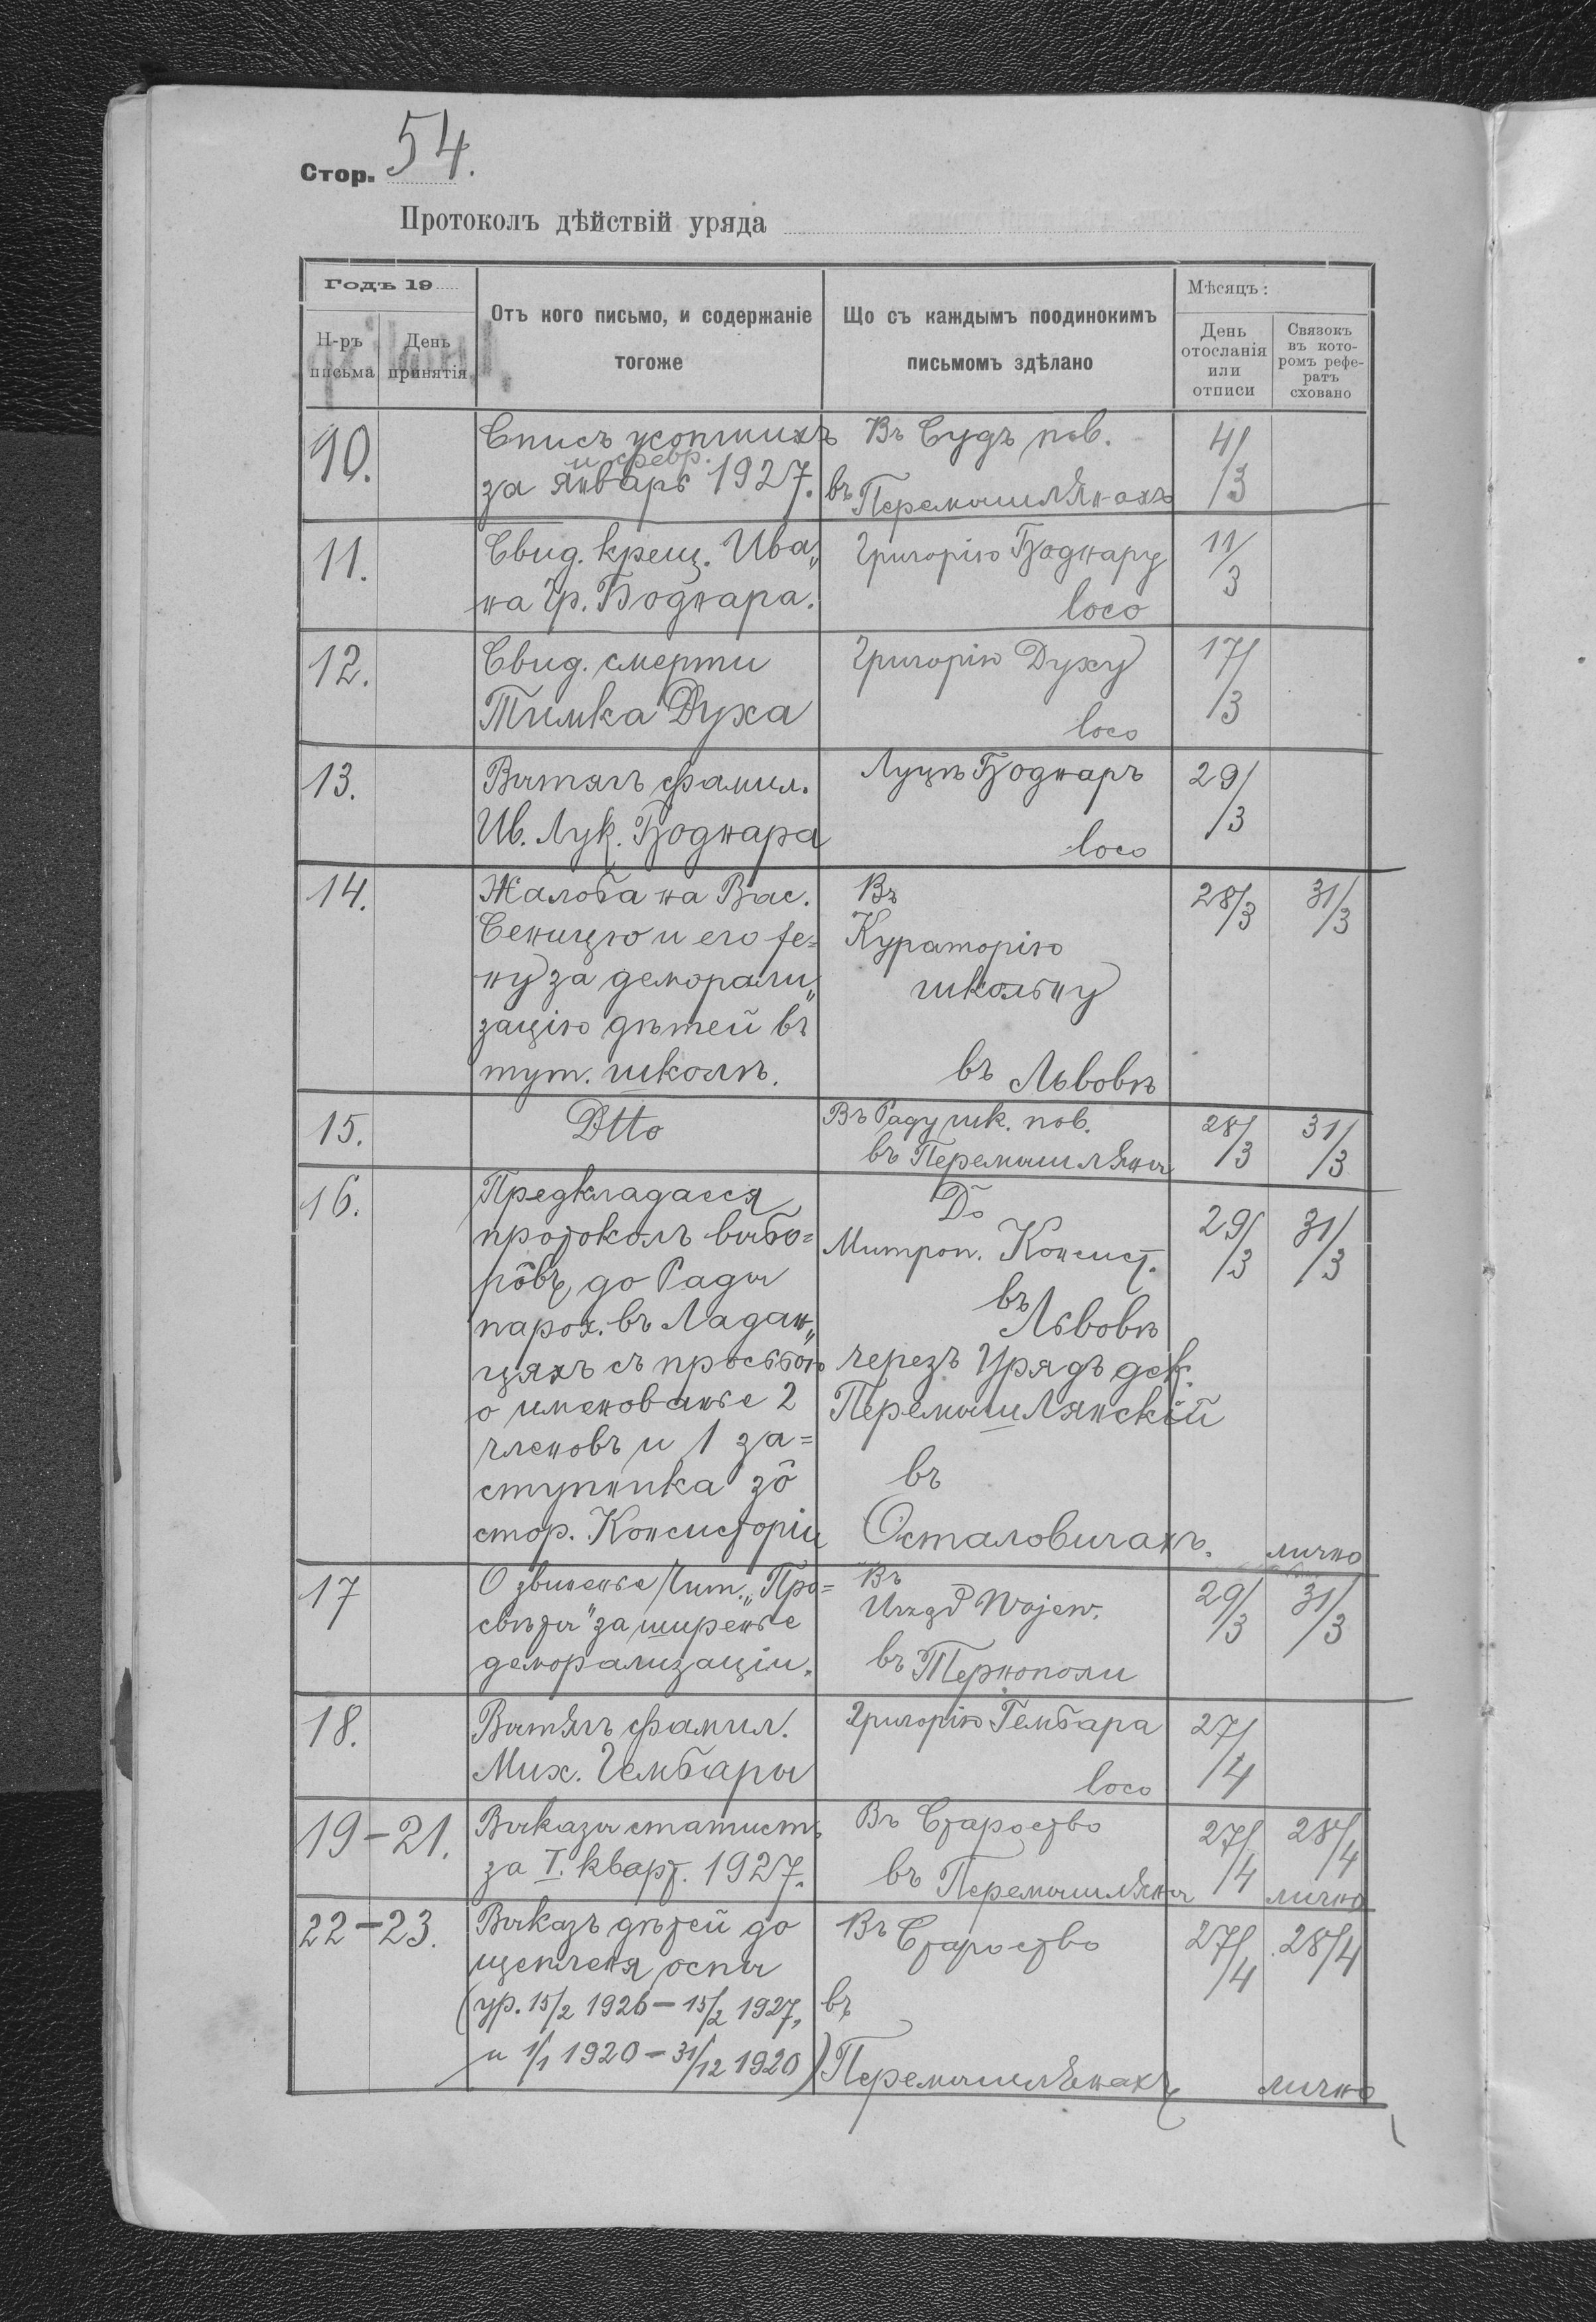 Стор. 54.
Протоколъ дѣйствій уряда
Годъ 19
Н-ръ письма
День принятія
Отъ кого письмо, и содержаніе
тогоже
Що съ каждымъ поодинокимъ
письмомъ здѣлано
Мѣсяцъ:
День
отосланія
или
отписи
Связокъ
въ кото-
ромъ рефе-
ратъ
сховано
10. Списъ усопшихъ Въ Судъ пов. 4/3
и февр.
за январь 1927. въ Перемышлянахъ
11. Свид. крещ. Ива„ Григорію Боднару 11/3
на Гр. Боднара. loco
12. Свид. смерти Григорію Духу 17/3
Тимка Духа loco
13. Вытягъ фамил. Луцѣ Боднаръ 29/3
Ив. Лук. Боднара loco
14. Жалоба на Вас. Въ 28/3 31/3
Сеницю и его же= Кураторію
ну за деморали„ школьну
зацію дѣтей въ
тут. школѣ. въ Львовѣ
15. Dtto Въ Раду шк. пов. 28/3 31/3
въ Перемышляны
16. Предкладаеся До 29/3 31/3
протоколъ выбо= Митроп. Консист.
рôвъ до Рады въ
парох. въ Ладан„ Львовѣ
цяхъ съ просьбою черезъ Урядъ дек.
о именованье 2 Перемышлянскій
членовъ и 1 за=
ступника зô въ
стор. Консисторіи Осталовичахъ. лично
17 О звиненье Чит. „Про= Въ 29/3 31/3
свѣты" за ширенье Urząd Wojew.
деморализаціи. въ Тернополи
18. Вытягъ фамил. Григорію Гембара 27/4
Мих. Гембары loco
19–21. Выказы статист. Въ Староство 27/4 28/4
за I. кварт. 1927. въ Перемышляны лично
22–23. Выказъ дѣтей до Въ Староство 27/4 28/4
щепленя оспы
(ур. 15/2 1926 – 15/2 1927, въ
и 1/1 1920 – 31/12 1920) Перемышлянахъ лично